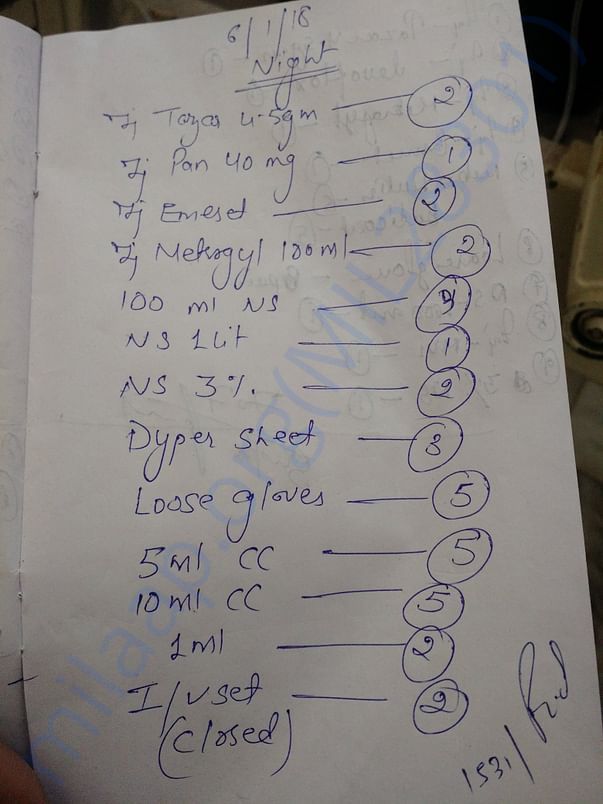 6/1/18
Night
Inj Tazar 4.5gm — 2
Inj Pan 40 mg — 1
Inj Emeset — 2
Inj Metrogyl 100ml — 2
100 ml NS —
NS 1 Lit — 1
NS 3% — 2
Dyper sheet — 3
Loose gloves — 5
5ml CC — 5
10ml CC — 5
1ml — 2
I/v set — 2
(Closed)
1531/
milaap.org(MIL278301)